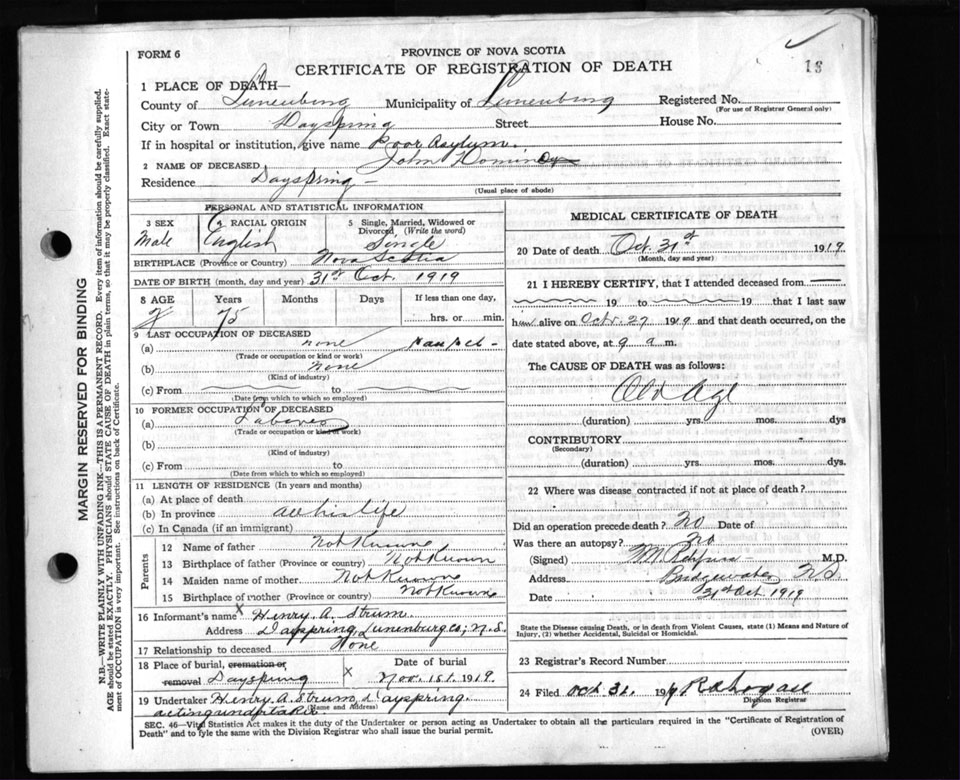 FORM 6
PROVINCE OF NOVA SCOTIA
CERTIFICATE OF REGISTRATION OF DEATH
18
1 PLACE OF DEATH—
County of Lunenburg Municipality of Lunenburg Registered No.
(For use of Registrar General only)
City or Town Dayspring Street House No.
If in hospital or institution, give name Poor Asylum.
2 NAME OF DECEASED John
Residence Dayspring
(Usual place of abode)
PERSONAL AND STATISTICAL INFORMATION
3 SEX Male
4 RACIAL ORIGIN English
5 Single, Married, Widowed or Divorced (Write the word) Single
BIRTHPLACE (Province or Country) Nova Scotia
DATE OF BIRTH (month, day and year) 31st Oct. 1919
8 AGE Years Months Days If less than one day,
75 hrs. or min.
9 LAST OCCUPATION OF DECEASED
(a) none pauper -
(Trade or occupation or kind or work)
(b) none
(Kind of industry)
(c) From to
(Date from which to which so employed)
10 FORMER OCCUPATION OF DECEASED
(a) Laborer
(Trade or occupation or kind or work)
(b)
(Kind of industry)
(c) From to
(Date from which to which so employed)
11 LENGTH OF RESIDENCE (In years and months)
(a) At place of death
(b) In province all his life
(c) In Canada (if an immigrant)
Parents
12 Name of father Not Known
13 Birthplace of father (Province or country) Not Known
14 Maiden name of mother Not Known
15 Birthplace of mother (Province or country) Not Known
16 Informant's name X Henry A. Strum
Address Dayspring, Lunenburg co; N.S.
17 Relationship to deceased None
18 Place of burial, cremation or removal Dayspring
X Date of burial Nov. 1st. 1919.
19 Undertaker Henry A. Strum Dayspring.
(Name and Address)
acting undertaker
MEDICAL CERTIFICATE OF DEATH
20 Date of death Oct. 31st 1919
(Month, day and year)
21 I HEREBY CERTIFY, that I attended deceased from
19 to 19 that I last saw
him alive on Oct. 27 1919 and that death occurred, on the
date stated above, at 9 a m.
The CAUSE OF DEATH was as follows:
Old Age
(duration) yrs. mos. dys
CONTRIBUTORY
(Secondary)
(duration) yrs. mos. dys.
22 Where was disease contracted if not at place of death?
Did an operation precede death? No Date of
Was there an autopsy? No
(Signed) M.D.
Address Bridgewater N.S.
Date 31st Oct. 1919
State the Disease causing Death, or in death from Violent Causes, state (1) Means and Nature of Injury, (2) whether Accidental, Suicidal or Homicidal.
23 Registrar's Record Number
24 Filed Oct. 31. 19
Division Registrar
SEC. 46—Vital Statistics Act makes it the duty of the Undertaker or person acting as Undertaker to obtain all the particulars required in the "Certificate of Registration of
Death" and to file the same with the Division Registrar who shall issue the burial permit. (OVER)
MARGIN RESERVED FOR BINDING
N.B.—WRITE PLAINLY WITH UNFADING INK—THIS IS A PERMANENT RECORD. Every item of information should be carefully supplied.
AGE should be stated EXACTLY. PHYSICIANS should STATE CAUSE OF DEATH in plain terms, so that it may be properly classified. Exact statement of OCCUPATION is very important. See instructions on back of Certificate.